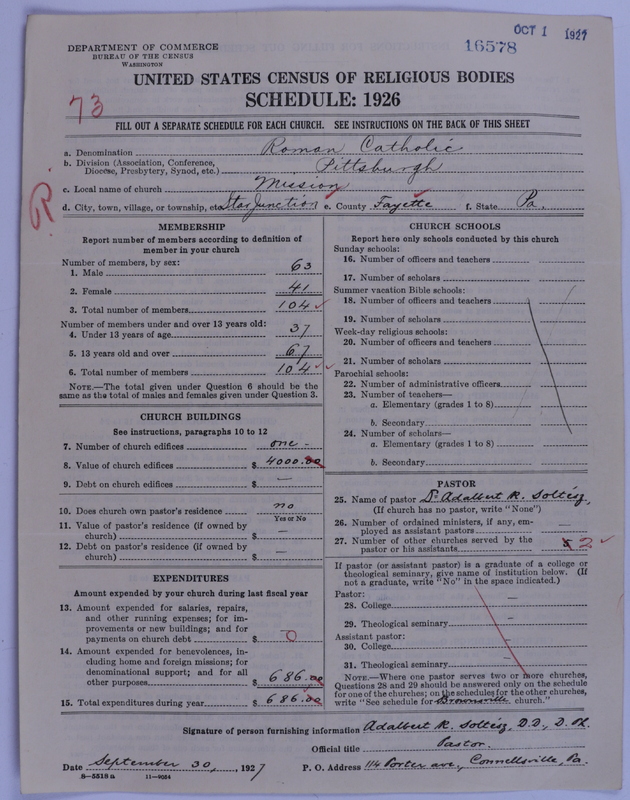 OCT 1 1927
16578
DEPARTMENT OF COMMERCE
BUREAU OF THE CENSUS
WASHINGTON
UNITED STATES CENSUS OF RELIGIOUS BODIES
SCHEDULE: 1926
73
FILL OUT A SEPARATE SCHEDULE FOR EACH CHURCH. SEE INSTRUCTIONS ON THE BACK OF THIS SHEET
R.
a. Denomination Roman Catholic
b. Division (Association, Conference,
Diocese, Presbytery, Synod, etc.) Pittsburgh
c. Local name of church Mission
d. City, town, village, or township, etc. Star Junction e. County Fayette f. State Pa.
MEMBERSHIP
Report number of members according to definition of
member in your church
Number of members, by sex:
1. Male 63
2. Female 41
3. Total number of members 104
Number of members under and over 13 years old:
4. Under 13 years of age 37
5. 13 years old and over 67
6. Total number of members 104
NOTE.—The total given under Question 6 should be the
same as the total of males and females given under Question 3.
CHURCH BUILDINGS
See instructions, paragraphs 10 to 12
7. Number of church edifices one -
8. Value of church edifices $ 4000.00
9. Debt on church edifices $ —
10. Does church own pastor's residence no
Yes or No
11. Value of pastor's residence (if owned by
church) $ —
12. Debt on pastor's residence (if owned by
church) $ —
EXPENDITURES
Amount expended by your church during last fiscal year
13. Amount expended for salaries, repairs,
and other running expenses; for im-
provements or new buildings; and for
payments on church debt $ 0
14. Amount expended for benevolences, in-
cluding home and foreign missions; for
denominational support; and for all
other purposes $ 686.00
15. Total expenditures during year $ 686.00
CHURCH SCHOOLS
Report here only schools conducted by this church
Sunday schools:
16. Number of officers and teachers
17. Number of scholars
Summer vacation Bible schools:
18. Number of officers and teachers
19. Number of scholars
Week-day religious schools:
20. Number of officers and teachers
21. Number of scholars
Parochial schools:
22. Number of administrative officers
23. Number of teachers—
a. Elementary (grades 1 to 8)
b. Secondary
24. Number of scholars—
a. Elementary (grades 1 to 8)
b. Secondary
PASTOR
25. Name of pastor Dr. Adalbert R. Soltész,
(If church has no pastor, write "None")
26. Number of ordained ministers, if any, em-
ployed as assistant pastors —
27. Number of other churches served by the
pastor or his assistants 2
If pastor (or assistant pastor) is a graduate of a college or
theological seminary, give name of institution below. (If
not a graduate, write "No" in the space indicated.)
Pastor:
28. College —
29. Theological seminary —
Assistant pastor:
30. College —
31. Theological seminary —
NOTE.—Where one pastor serves two or more churches,
Questions 28 and 29 should be answered only on the schedule
for one of the churches; on the schedules for the other churches,
write "See schedule for Brownsville church."
Signature of person furnishing information Adalbert R. Soltész, D.D., D. Ph.
Official title Pastor.
Date September 30, 1927 P. O. Address 114 Porter ave., Connellsville, Pa.
8—5518a 11—9024